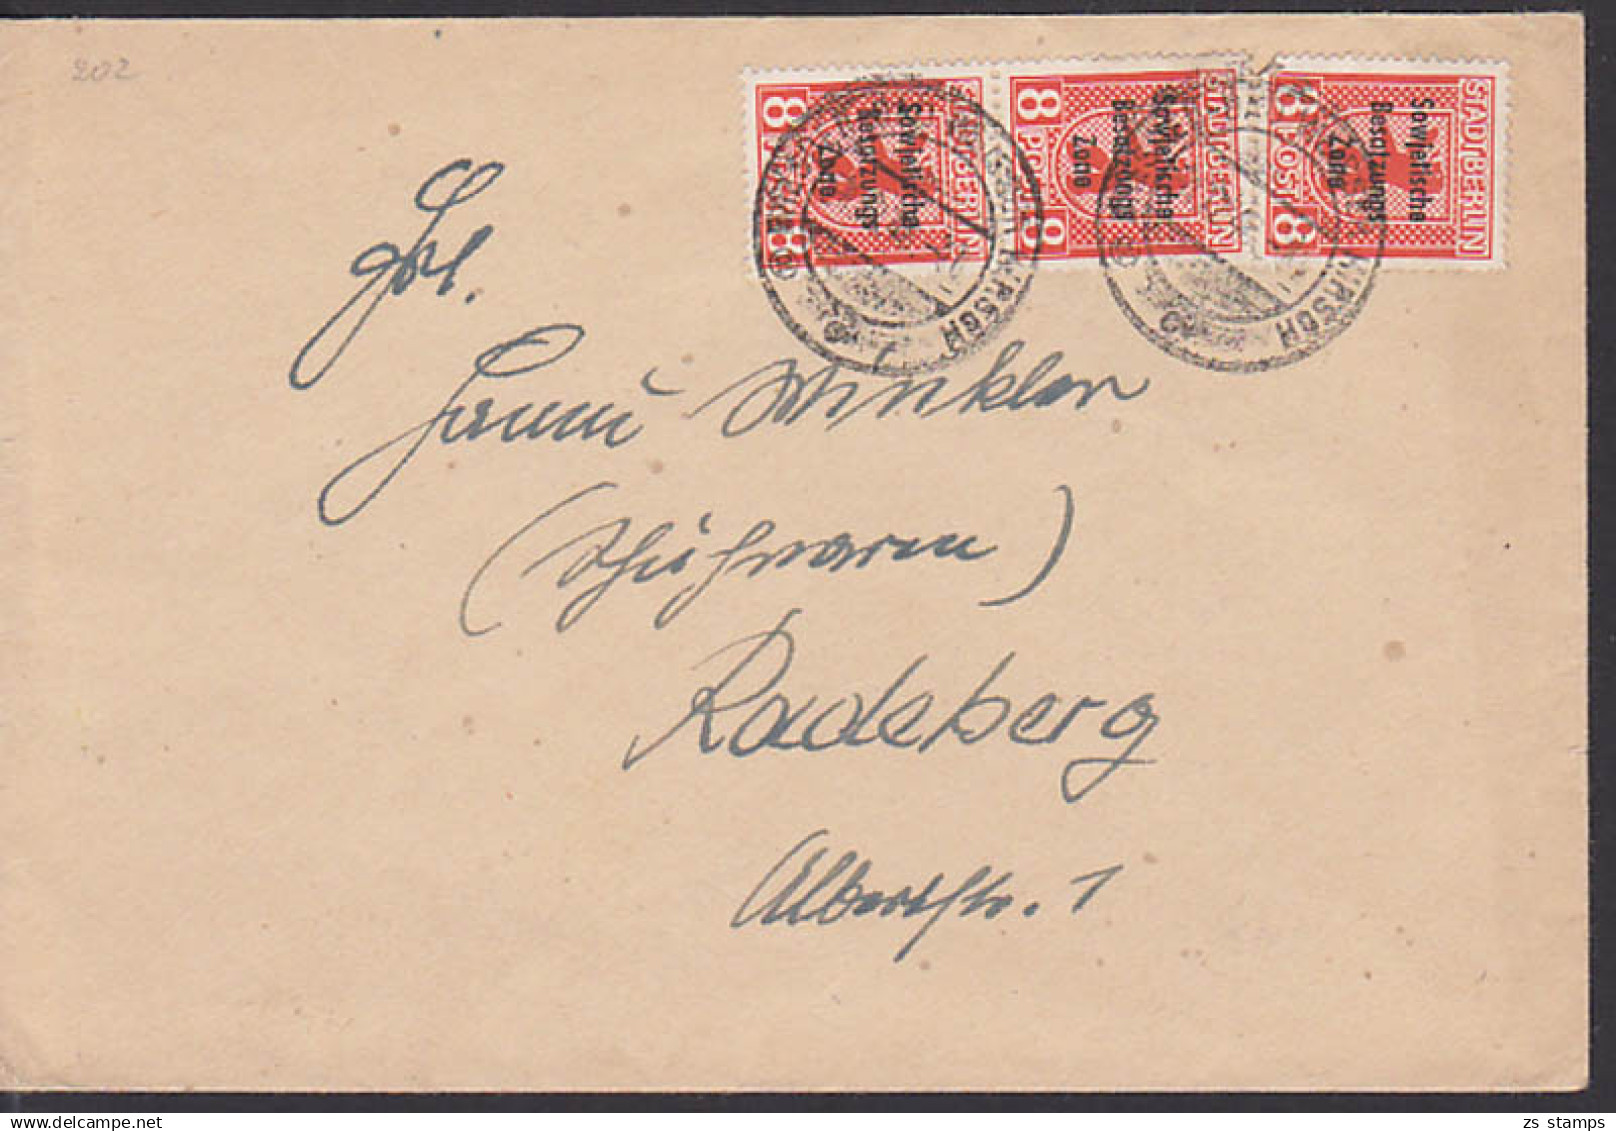 202
STADT BERLIN
8 POST 8
Sowjetische
Besatzungs
Zone
STADT BERLIN
8 POST 8
Sowjetische
Besatzungs
Zone
STADT BERLIN
8 POST 8
Sowjetische
Besatzungs
Zone
HIRSCH
HIRSCH
Frl.
Hanni Winkler
(Schuhwaren)
Radeberg
Albertstr. 1
zs stamps